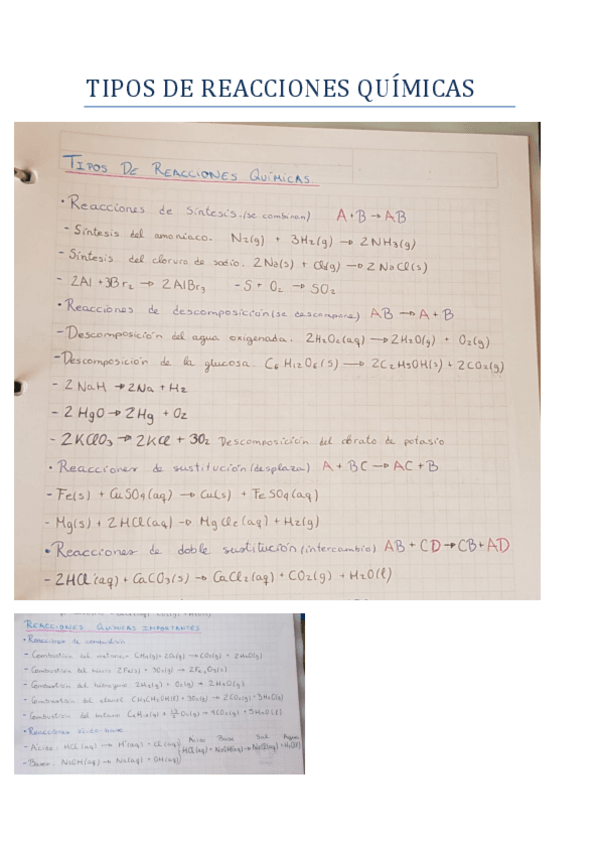 TIPOS DE REACCIONES QUÍMICAS
TIPOS DE REACCIONES QUÍMICAS.
• Reacciones de síntesis. (se combinan) A + B → AB
- Síntesis del amoníaco. N2(g) + 3H2(g) → 2NH3(g)
- Síntesis del cloruro de sodio. 2Na(s) + Cl2(g) → 2NaCl(s)
- 2Al + 3Br2 → 2AlBr3 - S + O2 → SO2
• Reacciones de descomposición (se descompone) AB → A + B
- Descomposición del agua oxigenada. 2H2O2(aq) → 2H2O(g) + O2(g)
- Descomposición de la glucosa. C6H12O6(s) → 2C2H5OH(s) + 2CO2(g)
- 2NaH → 2Na + H2
- 2HgO → 2Hg + O2
- 2KClO3 → 2KCl + 3O2 Descomposición del clorato de potasio
• Reacciones de sustitución (desplaza) A + BC → AC + B
- Fe(s) + CuSO4(aq) → Cu(s) + FeSO4(aq)
- Mg(s) + 2HCl(aq) → MgCl2(aq) + H2(g)
• Reacciones de doble sustitución (intercambio) AB + CD → CB + AD
- 2HCl(aq) + CaCO3(s) → CaCl2(aq) + CO2(g) + H2O(l)
REACCIONES QUÍMICAS IMPORTANTES
• Reacciones de combustión
- Combustión del metano CH4(g) + 2O2(g) → CO2(g) + 2H2O(g)
- Combustión del hierro 2Fe(s) + 3O2(g) → 2Fe2O3(s)
- Combustión del hidrógeno 2H2(g) + O2(g) → 2H2O(g)
- Combustión del etanol CH3CH2OH(l) + 3O2(g) → 2CO2(g) + 3H2O(g)
- Combustión del butano C4H10(g) + 13/2 O2(g) → 4CO2(g) + 5H2O(l)
• Reacciones ácido-base
Ácido Base Sal Agua
- Ácido: HCl(aq) → H+(aq) + Cl(aq) HCl(aq) + NaOH(aq) → NaCl(aq) + H2O(l)
- Base: NaOH(aq) → Na(aq) + OH(aq)